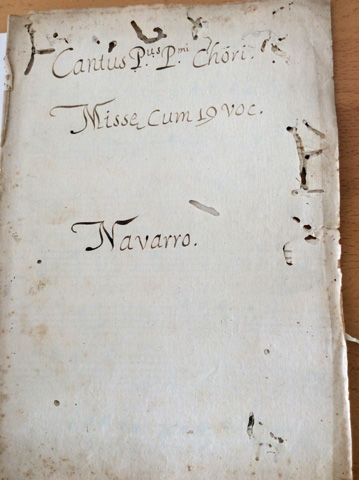 Cantus P.us P.mi Chori.
Missę Cum 19 voc.
Navarro.